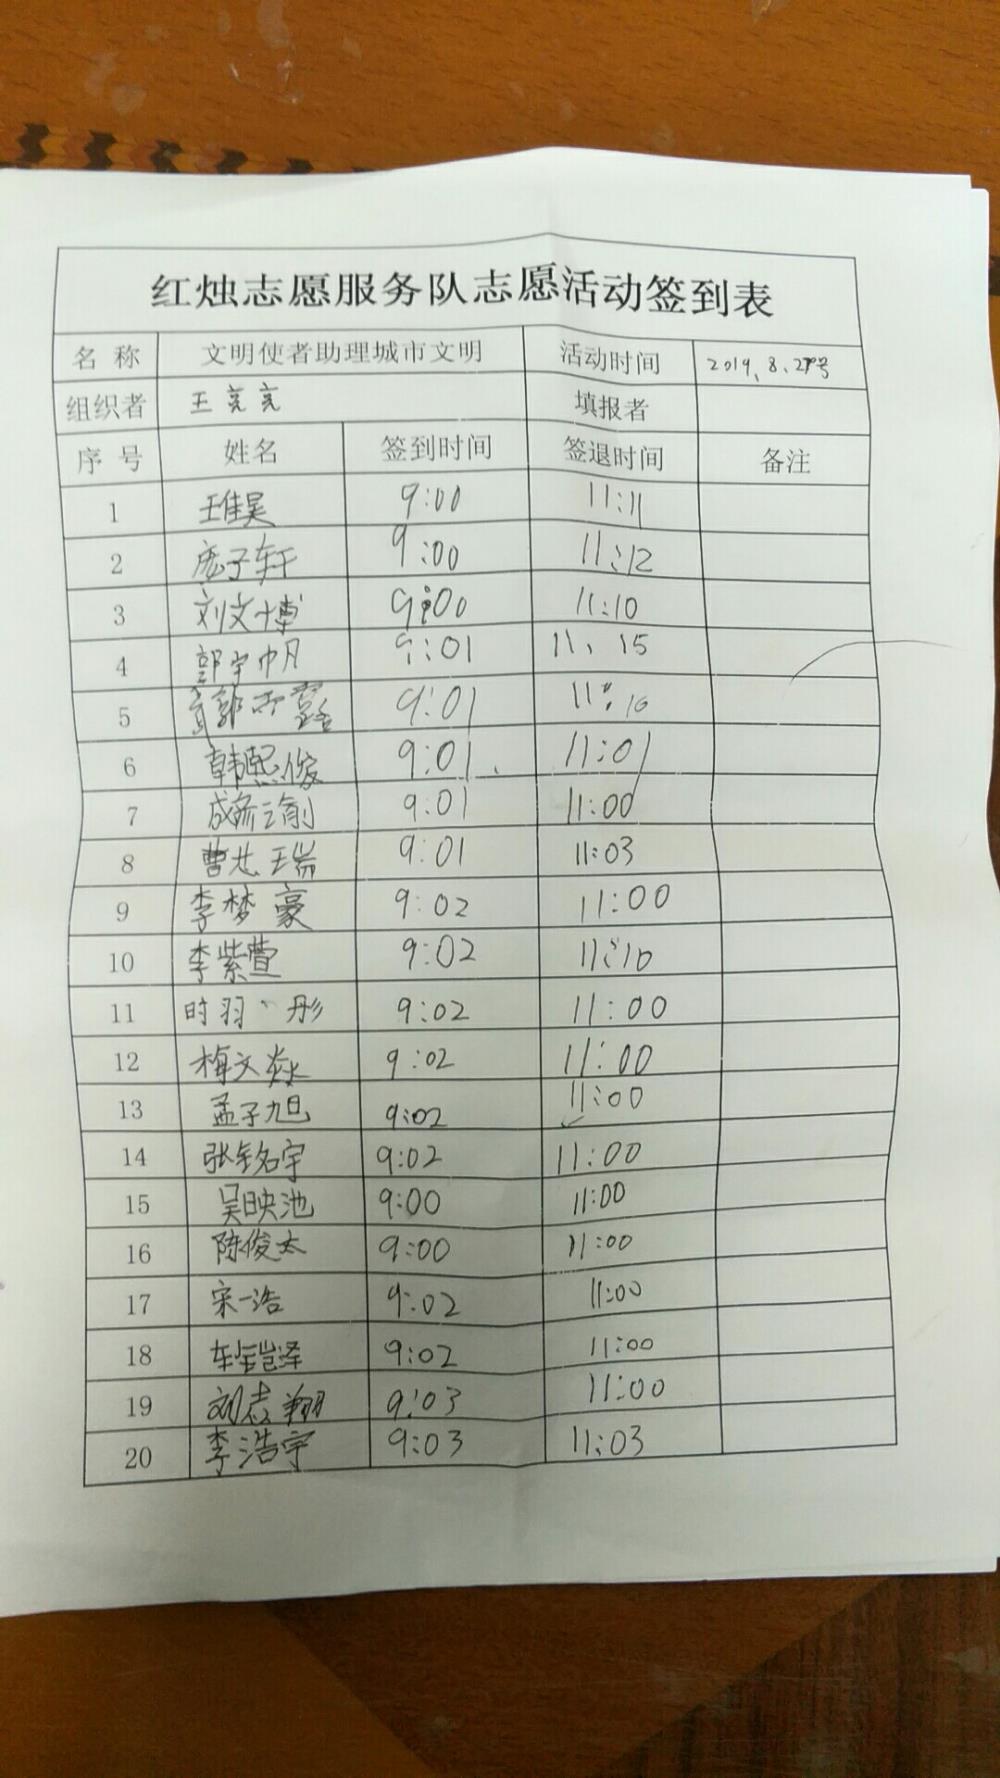 红烛志愿服务队志愿活动签到表
名 称 文明使者助理城市文明 活动时间 2019、8、 号
组织者 王亮亮 填报者
序 号 姓名 签到时间 签退时间 备注
1 王佳昊 9:00 11:11
2 庞子轩 9:00 11:12
3 刘文博 9:00 11:10
4 郭宇帅 9:01 11、15
5 郭雨露 9:01 11:10
6 韩熙俊 9:01 11:01
7 9:01 11:00
8 曹 瑞 9:01 11:03
9 李梦豪 9:02 11:00
10 李紫萱 9:02 11:10
11 时羽彤 9:02 11:00
12 梅文焱 9:02 11:00
13 孟子旭 9:02 11:00
14 张铭宇 9:02 11:00
15 吴映池 9:00 11:00
16 陈俊太 9:00 11:00
17 宋一浩 9:02 11:00
18 9:02 11:00
19 刘志翔 9:03 11:00
20 李浩宇 9:03 11:03